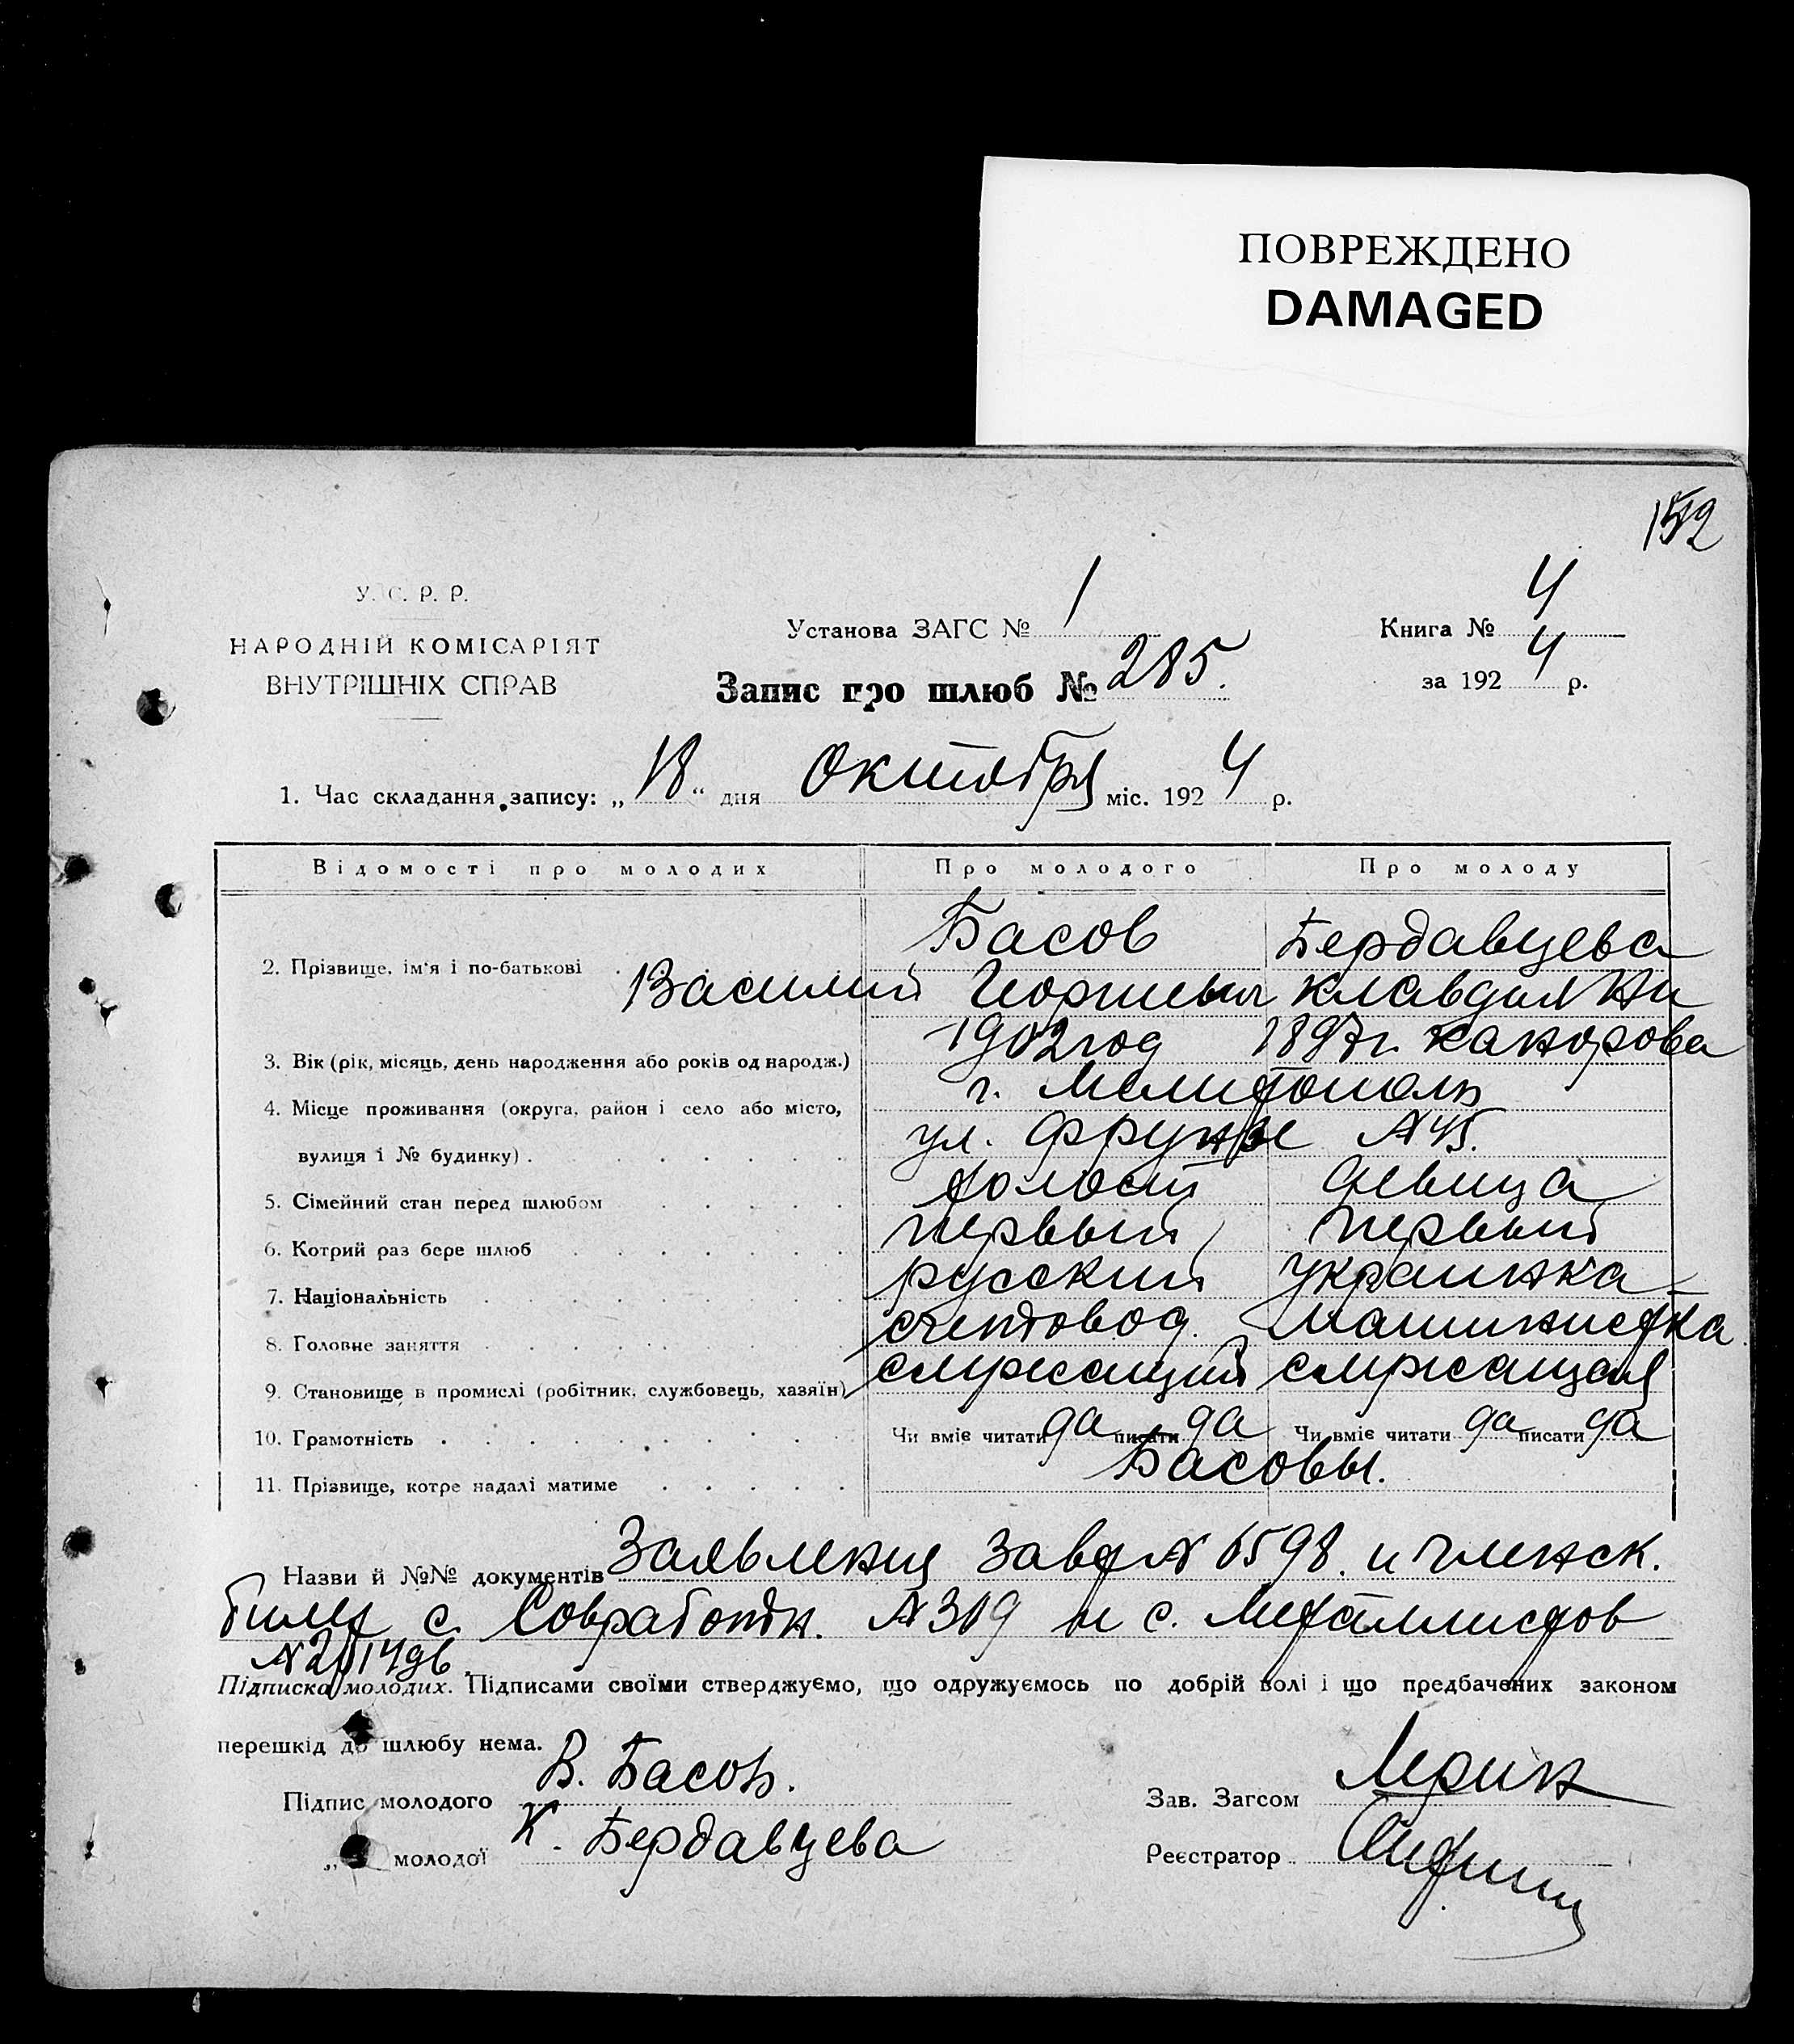 ПОВРЕЖДЕНО
DAMAGED
У. С. Р. Р.
НАРОДНІЙ КОМІСАРІЯТ
ВНУТРІШНІХ СПРАВ
Установа ЗАГС № 1
Запис про шлюб № 285.
Книга № 4
за 192 4 р.
1. Час складання запису: „ 18 “ дня Октября міс. 192 4 р.
Відомості про молодих Про молодого Про молоду
2. Прізвище, ім'я і по-батькові
Басов Бердавцева
Василий Георгиевич Клавдия Ни
каноровa
3. Вік (рік, місяць, день народження або років од народж.) 1902 год 1897 г.
4. Місце проживання (округа, район і село або місто, г. Мелитополь
вулиця і № будинку) . ул. Фрунзе N 45.
5. Сімейний стан перед шлюбом холост девица
6. Котрий раз бере шлюб первый первый
7. Національність русский украинка
8. Головне заняття счетовод. машинистка
9. Становище в промислі (робітник, службовець, хазяїн) служащий служащая
10. Грамотність Чи вміє читати да писати да Чи вміє читати да писати да
11. Прізвище, котре надалі матиме Басовы.
Назви й №№ документів Заявления N 6598. и членск.
билет с. Совработн. N 319 и с. Металлистов
Підписка молодих. Підписами своїми стверджуємо, що одружуємось по добрій волі і що предбачених законом
перешкід до шлюбу нема.
Підпис молодого В. Басов.
„ молодої К. Бердавцева
Зав. Загсом
Реєстратор